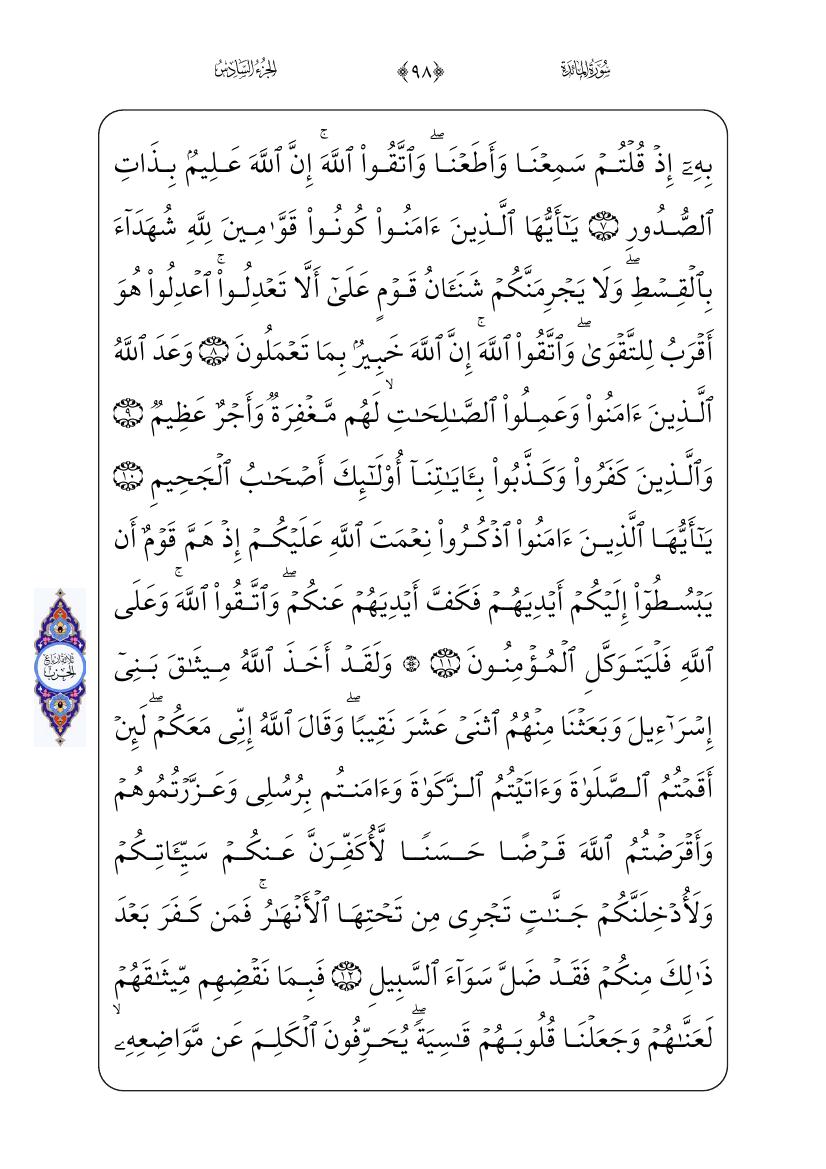 سُورَةُ المَائدَة
﴿٩٨﴾
الجُزءُ السَّادسُ
بِهِۦٓ إِذۡ قُلۡتُمۡ سَمِعۡنَا وَأَطَعۡنَاۖ وَٱتَّقُواْ ٱللَّهَۚ إِنَّ ٱللَّهَ عَلِيمُۢ بِذَاتِ
ٱلصُّدُورِ ٧ يَٰٓأَيُّهَا ٱلَّذِينَ ءَامَنُواْ كُونُواْ قَوَّٰمِينَ لِلَّهِ شُهَدَآءَ
بِٱلۡقِسۡطِۖ وَلَا يَجۡرِمَنَّكُمۡ شَنَـَٔانُ قَوۡمٍ عَلَىٰٓ أَلَّا تَعۡدِلُواْۚ ٱعۡدِلُواْ هُوَ
أَقۡرَبُ لِلتَّقۡوَىٰۖ وَٱتَّقُواْ ٱللَّهَۚ إِنَّ ٱللَّهَ خَبِيرُۢ بِمَا تَعۡمَلُونَ ٨ وَعَدَ ٱللَّهُ
ٱلَّذِينَ ءَامَنُواْ وَعَمِلُواْ ٱلصَّٰلِحَٰتِ ۙ لَهُم مَّغۡفِرَةٞ وَأَجۡرٌ عَظِيمٞ ٩
وَٱلَّذِينَ كَفَرُواْ وَكَذَّبُواْ بِـَٔايَٰتِنَآ أُوْلَٰٓئِكَ أَصۡحَٰبُ ٱلۡجَحِيمِ ١٠
يَٰٓأَيُّهَا ٱلَّذِينَ ءَامَنُواْ ٱذۡكُرُواْ نِعۡمَتَ ٱللَّهِ عَلَيۡكُمۡ إِذۡ هَمَّ قَوۡمٌ أَن
يَبۡسُطُوٓاْ إِلَيۡكُمۡ أَيۡدِيَهُمۡ فَكَفَّ أَيۡدِيَهُمۡ عَنكُمۡۖ وَٱتَّقُواْ ٱللَّهَۚ وَعَلَى
ٱللَّهِ فَلۡيَتَوَكَّلِ ٱلۡمُؤۡمِنُونَ ١١ ۞ وَلَقَدۡ أَخَذَ ٱللَّهُ مِيثَٰقَ بَنِيٓ
إِسۡرَٰٓءِيلَ وَبَعَثۡنَا مِنۡهُمُ ٱثۡنَيۡ عَشَرَ نَقِيبٗاۖ وَقَالَ ٱللَّهُ إِنِّي مَعَكُمۡۖ لَئِنۡ
أَقَمۡتُمُ ٱلصَّلَوٰةَ وَءَاتَيۡتُمُ ٱلزَّكَوٰةَ وَءَامَنتُم بِرُسُلِي وَعَزَّرۡتُمُوهُمۡ
وَأَقۡرَضۡتُمُ ٱللَّهَ قَرۡضًا حَسَنٗا لَّأُكَفِّرَنَّ عَنكُمۡ سَيِّـَٔاتِكُمۡ
وَلَأُدۡخِلَنَّكُمۡ جَنَّٰتٖ تَجۡرِي مِن تَحۡتِهَا ٱلۡأَنۡهَٰرُۚ فَمَن كَفَرَ بَعۡدَ
ذَٰلِكَ مِنكُمۡ فَقَدۡ ضَلَّ سَوَآءَ ٱلسَّبِيلِ ١٢ فَبِمَا نَقۡضِهِم مِّيثَٰقَهُمۡ
لَعَنَّٰهُمۡ وَجَعَلۡنَا قُلُوبَهُمۡ قَٰسِيَةٗۖ يُحَرِّفُونَ ٱلۡكَلِمَ عَن مَّوَاضِعِهِۦ ۙ
ثلاثة أرباع
الحزب